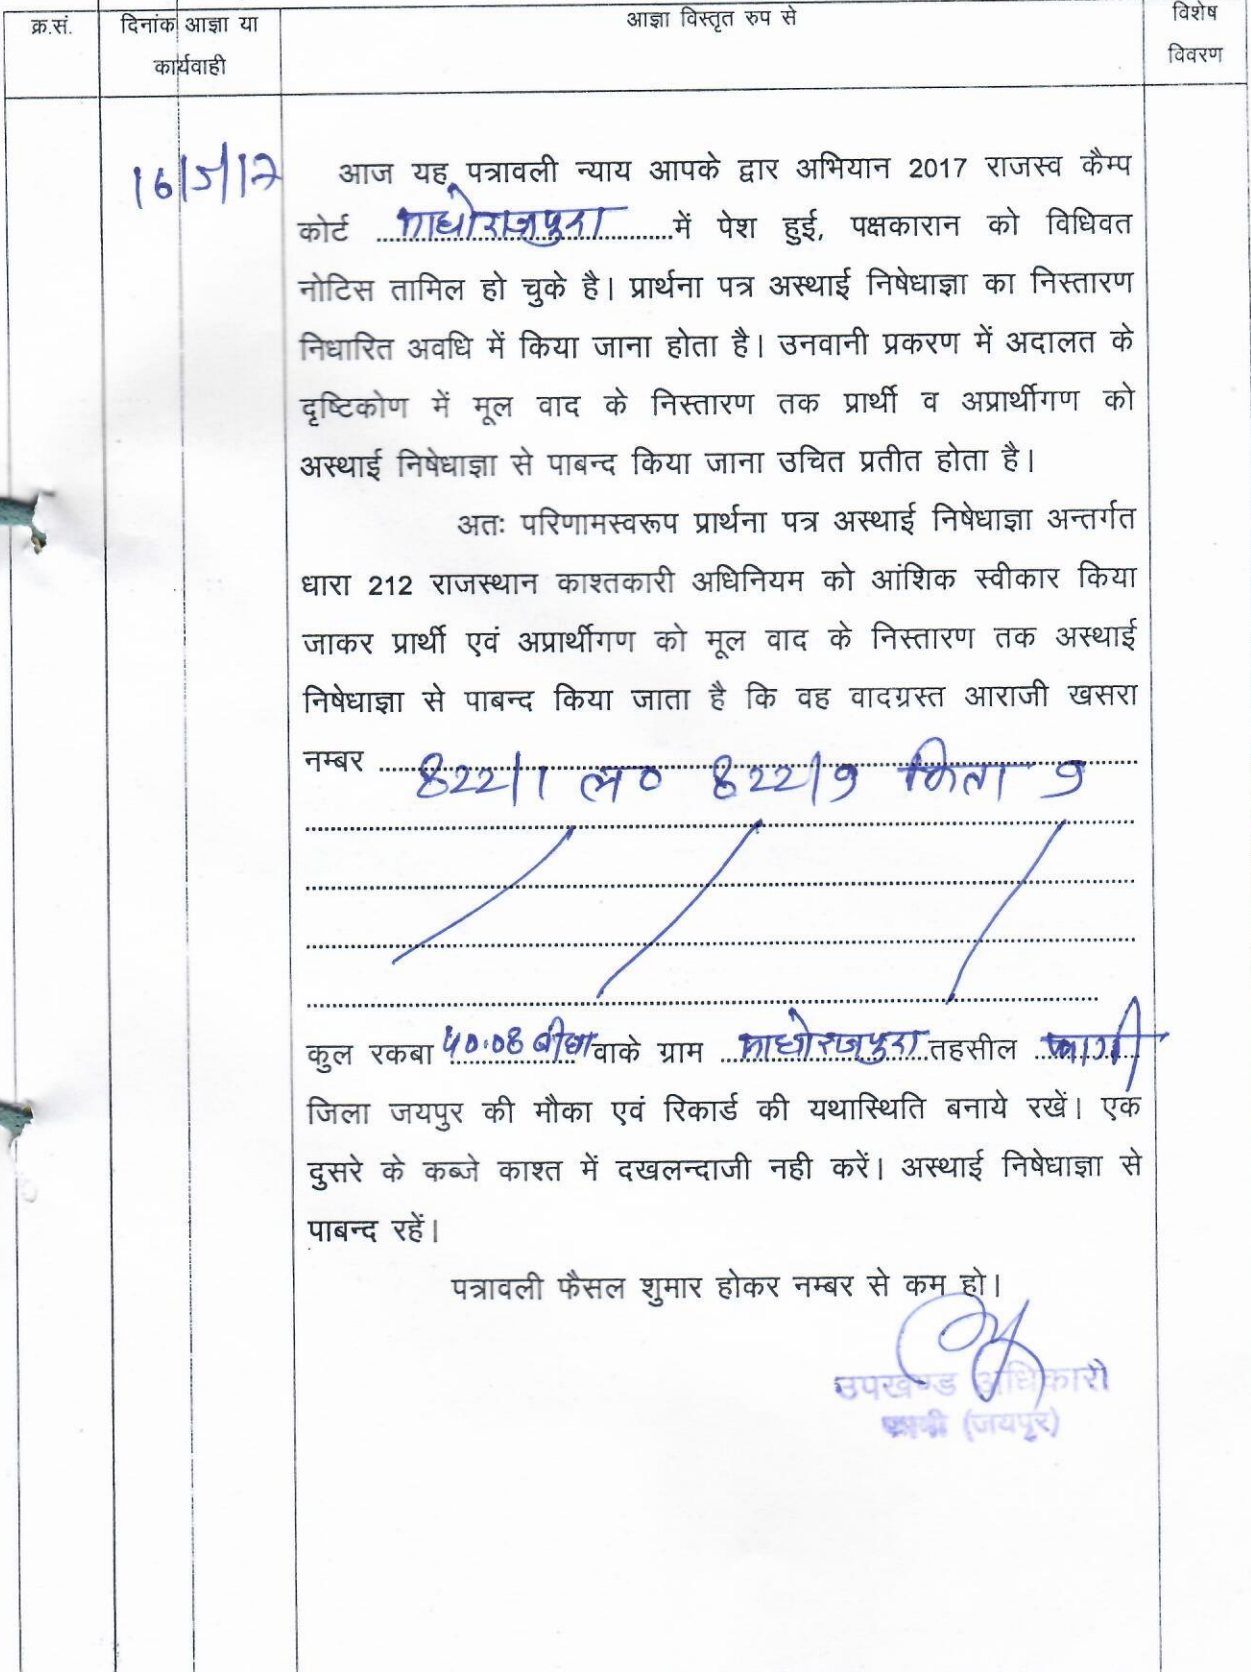 क्र.सं.
दिनांक आज्ञा या
कार्यवाही
आज्ञा विस्तृत रुप से
विशेष
विवरण
16/5/17
आज यह पत्रावली न्याय आपके द्वार अभियान 2017 राजस्व कैम्प
कोर्ट माधोराजपुरा में पेश हुई, पक्षकारान को विधिवत
नोटिस तामिल हो चुके है। प्रार्थना पत्र अस्थाई निषेधाज्ञा का निस्तारण
निधारित अवधि में किया जाना होता है। उनवानी प्रकरण में अदालत के
दृष्टिकोण में मूल वाद के निस्तारण तक प्रार्थी व अप्रार्थीगण को
अस्थाई निषेधाज्ञा से पाबन्द किया जाना उचित प्रतीत होता है।
अतः परिणामस्वरूप प्रार्थना पत्र अस्थाई निषेधाज्ञा अन्तर्गत
धारा 212 राजस्थान काश्तकारी अधिनियम को आंशिक स्वीकार किया
जाकर प्रार्थी एवं अप्रार्थीगण को मूल वाद के निस्तारण तक अस्थाई
निषेधाज्ञा से पाबन्द किया जाता है कि वह वादग्रस्त आराजी खसरा
नम्बर 822/1 ल० 822/9 किता 9
कुल रकबा 40.08 बीघा वाके ग्राम माधोराजपुरा तहसील फागी
जिला जयपुर की मौका एवं रिकार्ड की यथास्थिति बनाये रखें। एक
दुसरे के कब्जे काश्त में दखलन्दाजी नही करें। अस्थाई निषेधाज्ञा से
पाबन्द रहें।
पत्रावली फैसल शुमार होकर नम्बर से कम हो।
उपखण्ड अधिकारी
फागी (जयपुर)